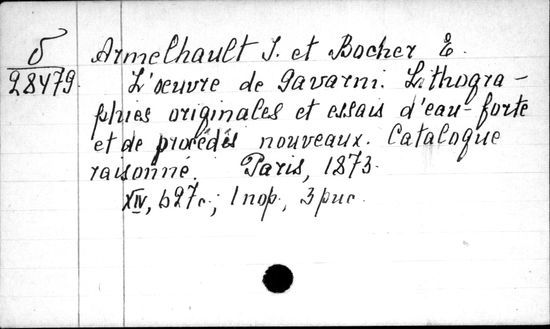 б
28479
Armelhault J. et Bocher E.
L'oeuvre de Gavarni. Lithogra-
phies originales et essais d'eau-forte
et de procédés nouveaux. Catalogue
raisonné. Paris, 1873.
XIV, 627c.; 1 пор., 3 рис.